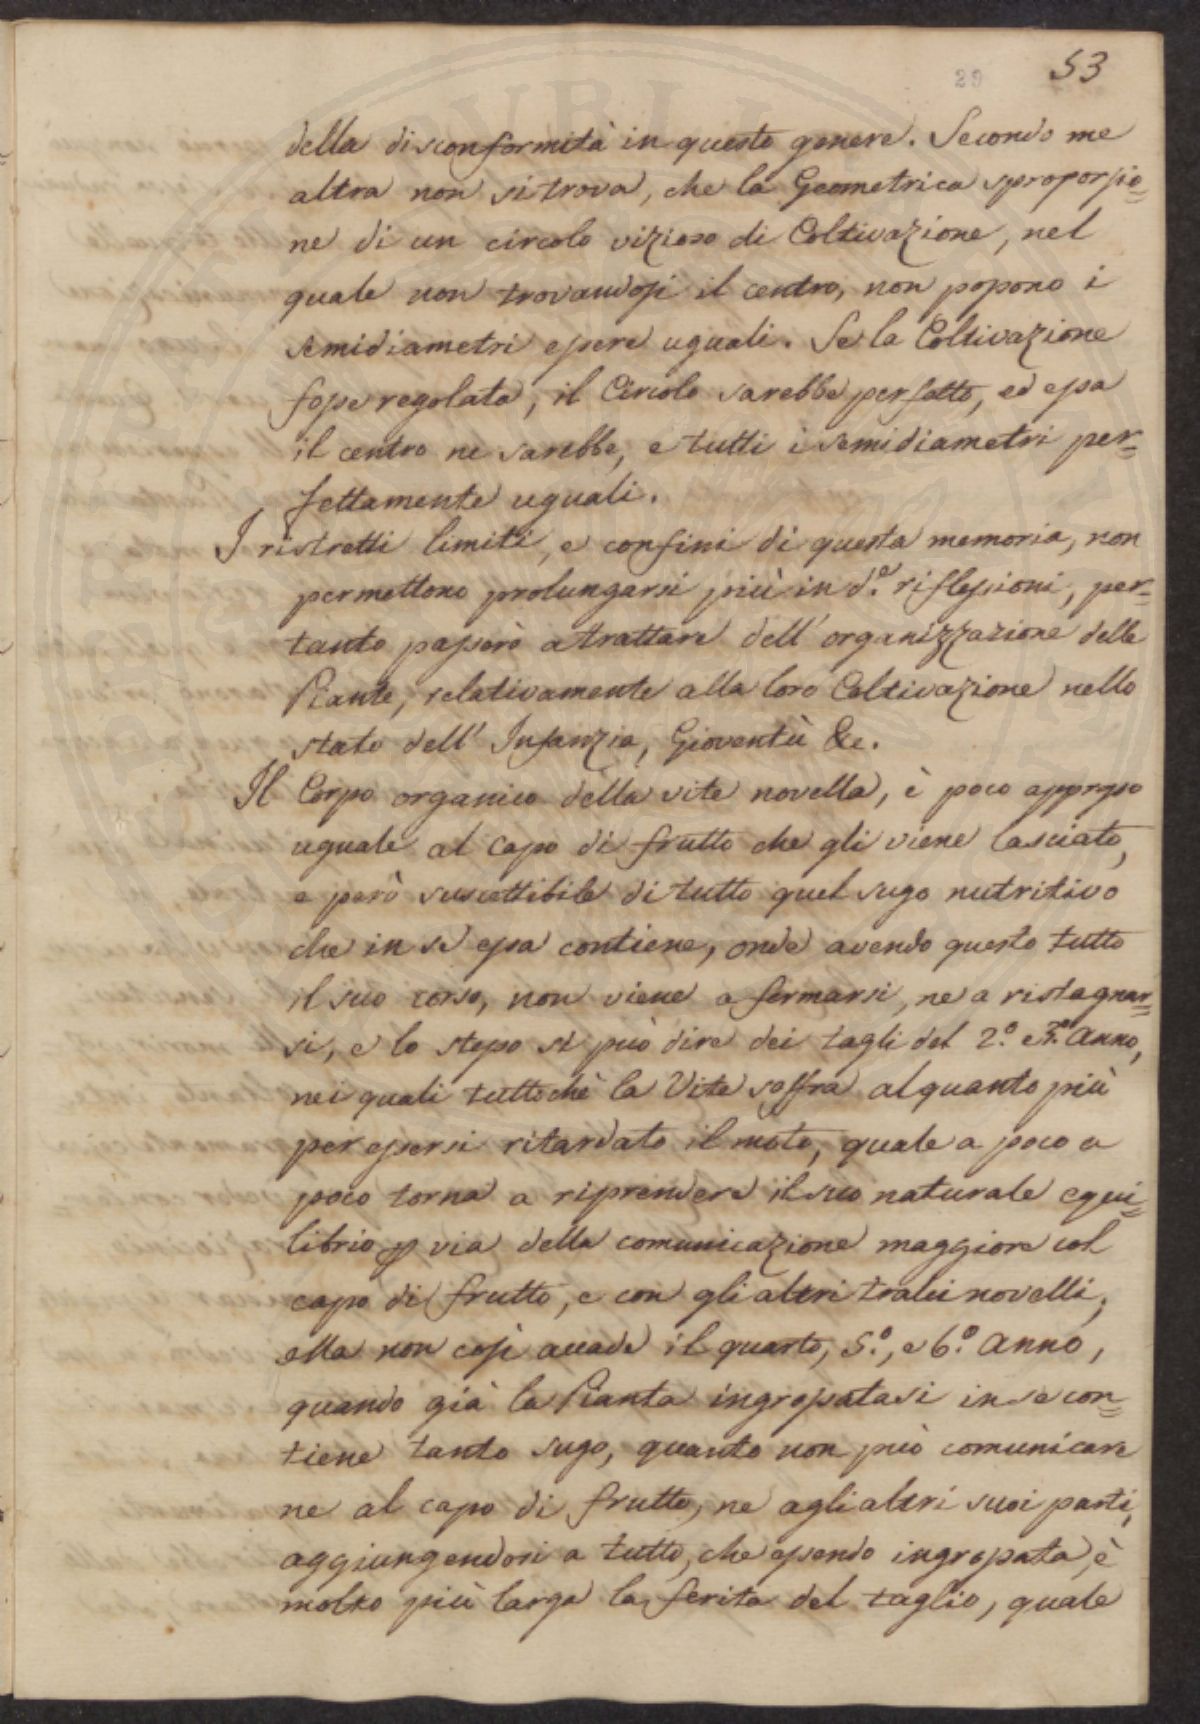 29 53
della disconformità in questo genere. Secondo me
altra non si trova, che la Geometrica sproporzio=
ne di un circolo vizioso di Coltivazione, nel
quale non trovandosi il centro, non possono i
semidiametri essere uguali. Se la Coltivazione
fosse regolata, il Circolo sarebbe perfetto, ed essa
il centro ne sarebbe, e tutti i semidiametri per=
fettamente uguali.
I ristretti limiti, e confini di questa memoria, non
permettono prolungarsi più in d.e riflessioni, per=
tanto passerò a trattare dell' organizzazione delle
Piante, relativamente alla loro Coltivazione nello
stato dell' Infanzia, Gioventù &c.
Il Corpo organico della vite novella, è poco appresso
uguale al capo di frutto che gli viene lasciato,
e però suscettibile di tutto quel sugo nutritivo
che in se essa contiene, onde avendo questo tutto
il suo corso, non viene a fermarsi, ne a ristagnar=
si, e lo stesso si può dire dei tagli del 2.o e 3.o anno,
nei quali tuttochè la Vite soffra alquanto più
per essersi ritardato il moto, quale a poco a
poco torna a riprendere il suo naturale equi=
librio p via della comunicazione maggiore col
capo di frutto, e con gli altri tralci novelli;
Ma non così accade il quarto, 5.o, e 6.o anno,
quando già la Pianta ingrossatasi in se con=
tiene tanto sugo, quanto non può comunicare
ne al capo di frutto, ne agli altri suoi parti,
aggiungendosi a tutto, che essendo ingrossata, è
molto più larga la ferita del taglio, quale